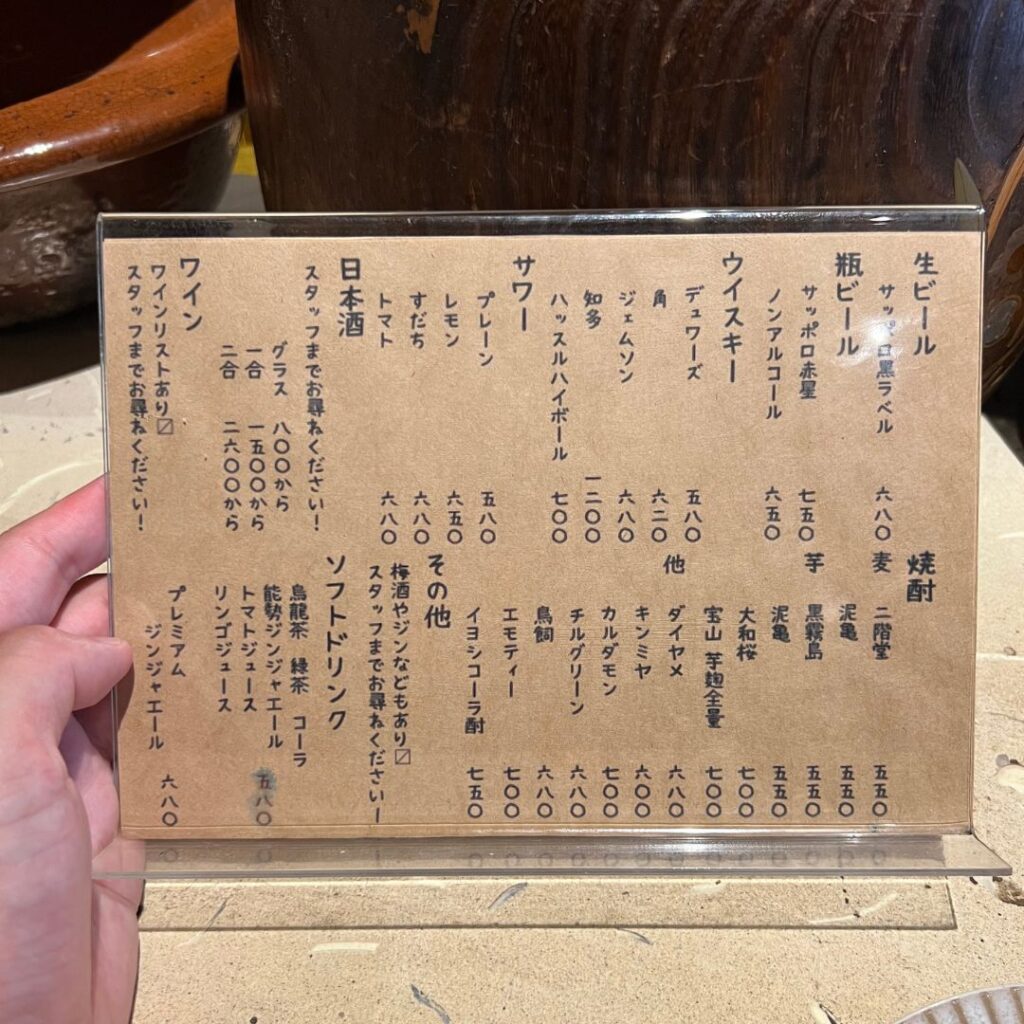 生ビール
サッポロ黒ラベル 六八〇
瓶ビール
サッポロ赤星 七五〇
ノンアルコール 六五〇
ウイスキー
デュワーズ 五八〇
角 六二〇
ジェムソン 六八〇
知多 一二〇〇
ハッスルハイボール 七〇〇
サワー
プレーン 五八〇
レモン 六五〇
すだち 六八〇
トマト 六八〇
日本酒
スタッフまでお尋ねください!
グラス 八〇〇から
一合 一五〇〇から
二合 二六〇〇から
ワイン
ワインリストあり〼
スタッフまでお尋ねください!
焼酎
麦 二階堂 五五〇
泥亀 五五〇
芋 黒霧島 五五〇
泥亀 五五〇
大和桜 七〇〇
宝山 芋麹全量 七〇〇
他 ダイヤメ 六八〇
キンミヤ 六〇〇
カルダモン 七〇〇
チルグリーン 六八〇
鳥飼 六八〇
エモティー 七〇〇
イヨシコーラ酎 七五〇
その他
梅酒やジンなどもあり〼
スタッフまでお尋ねくださいー
ソフトドリンク
烏龍茶 緑茶 コーラ
能勢ジンジャエール
トマトジュース
リンゴジュース 五八〇
プレミアム
ジンジャエール 六八〇